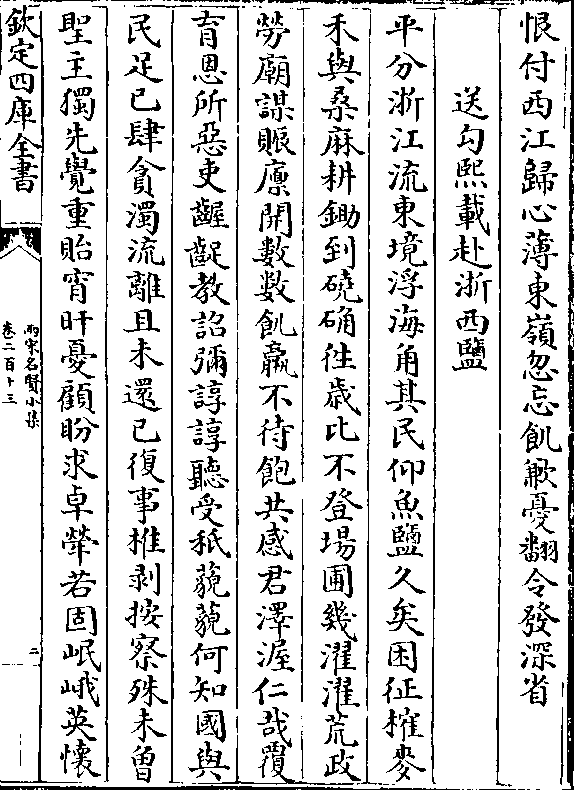 恨付西江歸心薄東嶺忽忘飢歉憂翻令發深省
送勾熙載赴浙西鹽
平分浙江流東境浮海角其民仰魚鹽久矣困征搉麥
禾與桑麻耕鋤到磽确徃歳比不登場圃幾濯濯荒政
勞廟謀賑廪開數數飢羸不待飽共感君澤渥仁哉覆
育恩所惡吏齷齪教詔彌諄諄聽受秪藐藐何知國與
民足已肆貪濁流離且未還已復事椎剥按察殊未曽
聖主獨先覺重貽宵旰憂顧盼求卓犖若固岷峨英懐
欽定四庫全書
兩宋名賢小集
卷二百十三
二